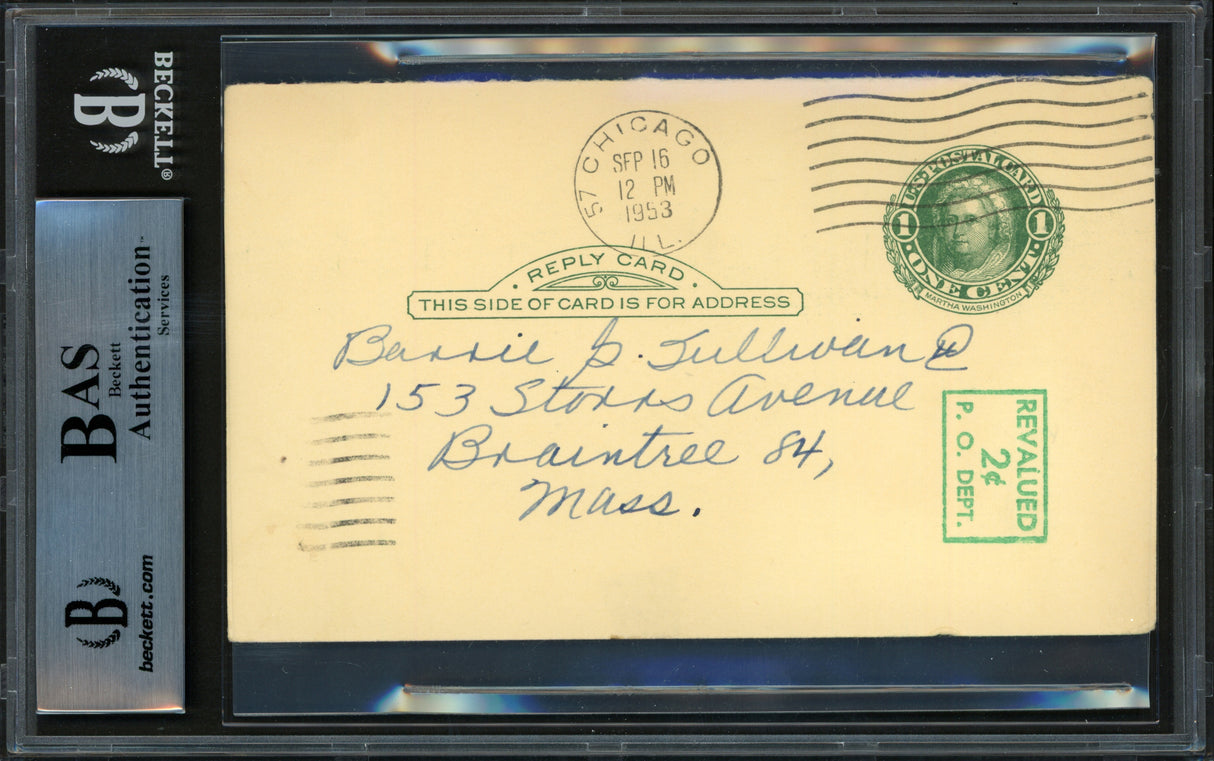 BECKETT®
B
BAS
Beckett
Authentication™
Services
B
beckett.com
57 CHICAGO ILL.
SEP 16
12 PM
1953
U.S. POSTAL CARD
1 1
ONE CENT
MARTHA WASHINGTON
REPLY CARD
THIS SIDE OF CARD IS FOR ADDRESS
Barrie Sullivan
153 Storrs Avenue
Braintree 84,
Mass.
REVALUED
2¢
P. O. DEPT.